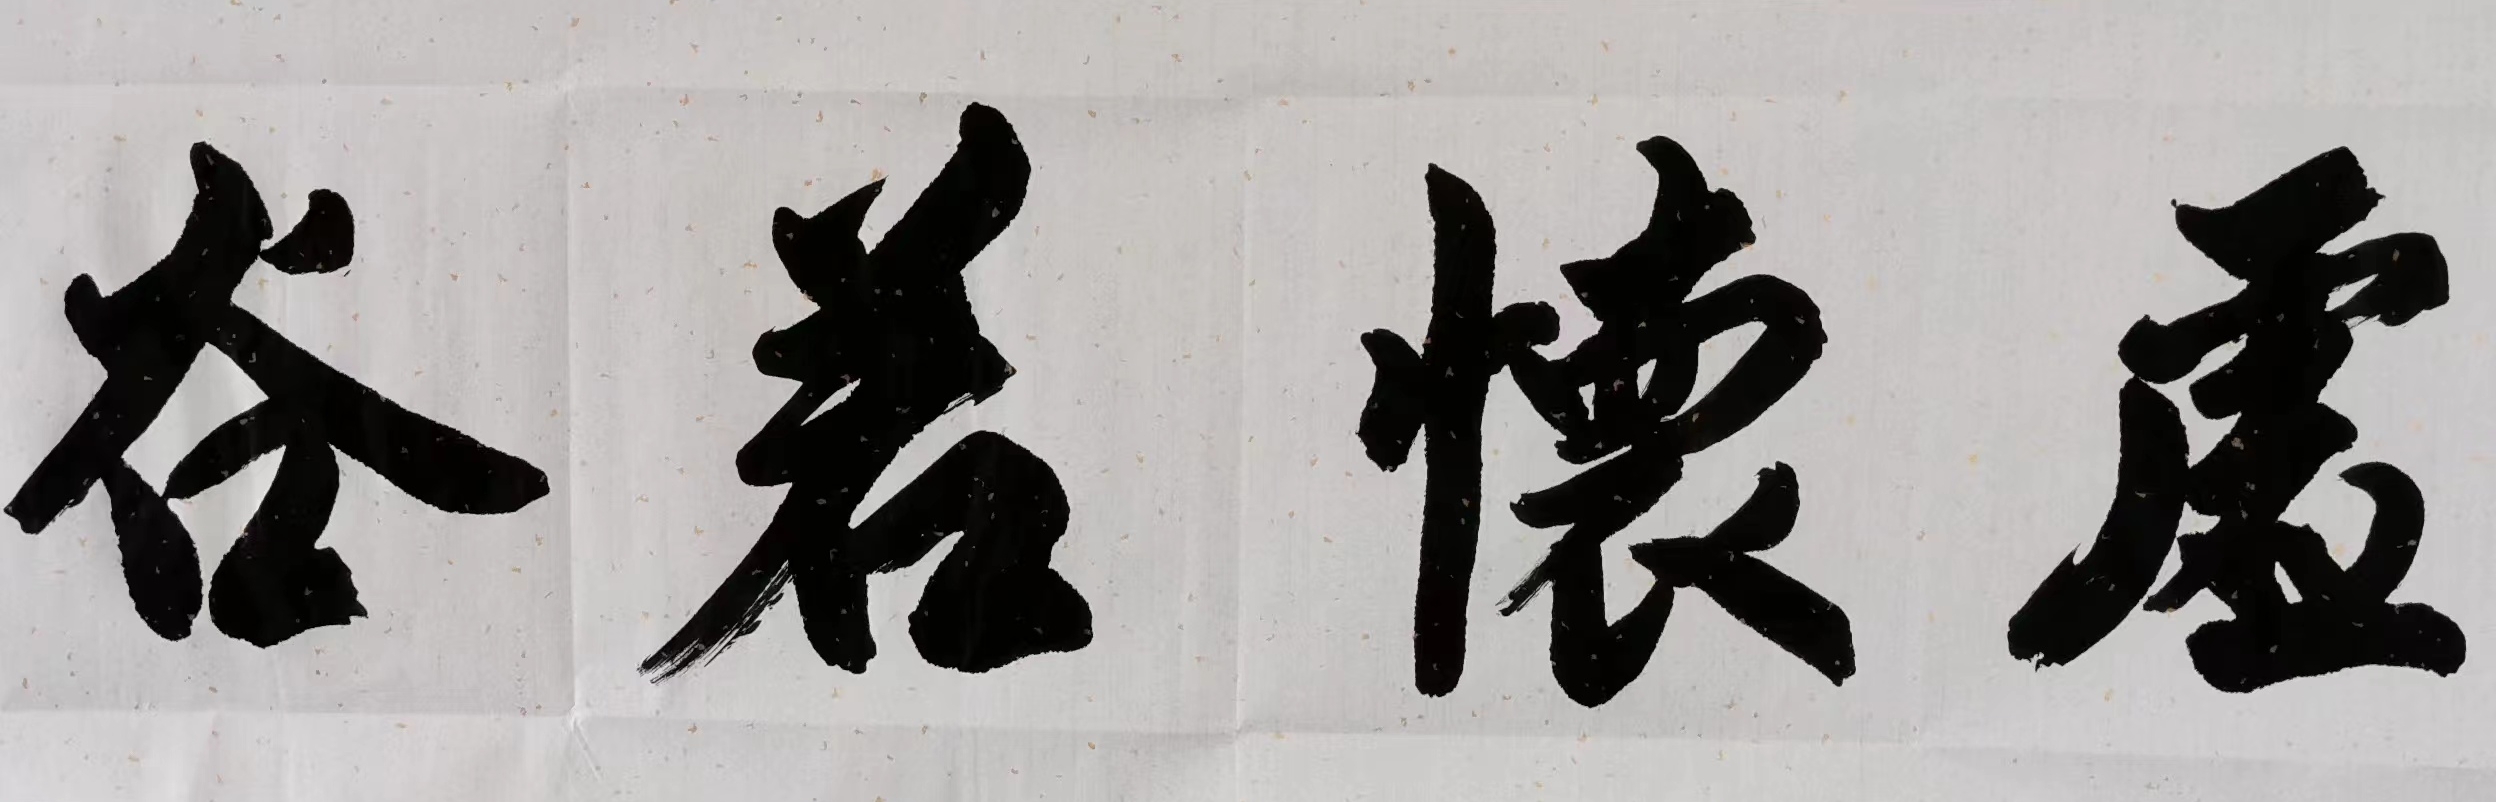 虛懷若谷